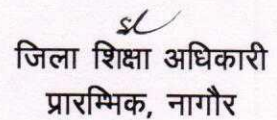 जिला शिक्षा अधिकारी
प्रारम्भिक, नागौर